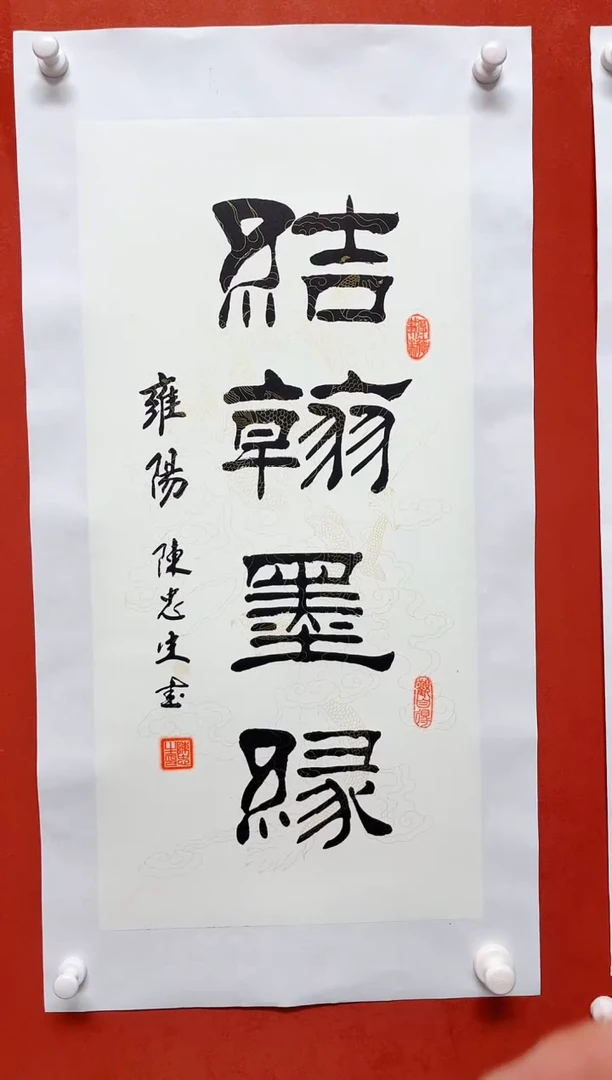 結翰墨緣
雍陽 陳忠生書